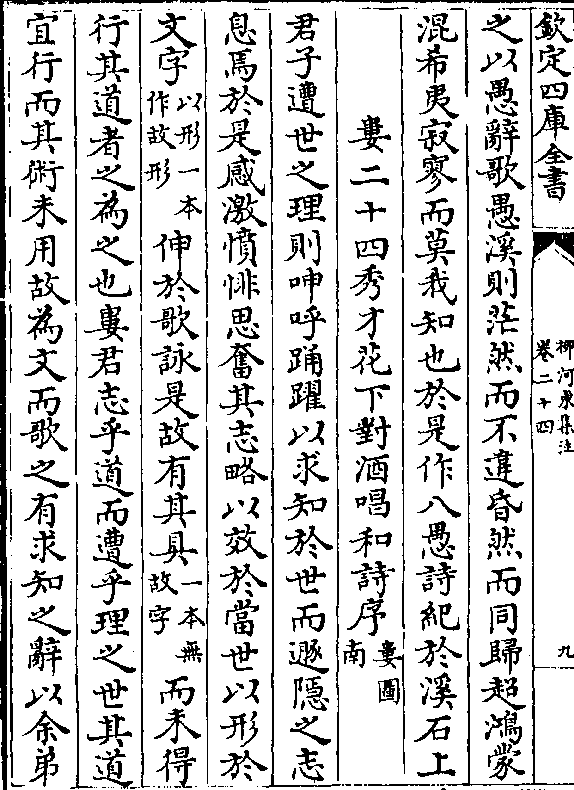 欽定四庫全書
柳河東集注
卷二十四
九
之以愚辭歌愚溪則茫然而不違昏然而同歸超鴻蒙
混希夷寂寥而莫我知也於是作八愚詩紀於溪石上
婁二十四秀才花下對酒唱和詩序婁圖南
君子遭世之理則呻呼踊躍以求知於世而遯隱之志
息焉於是感激憤悱思奮其志略以效於當世以形於
文字以形一本作故形伸於歌詠是故有其具一本無故字而未得
行其道者之為之也婁君志乎道而遭乎理之世其道
宜行而其術未用故為文而歌之有求知之辭以余弟